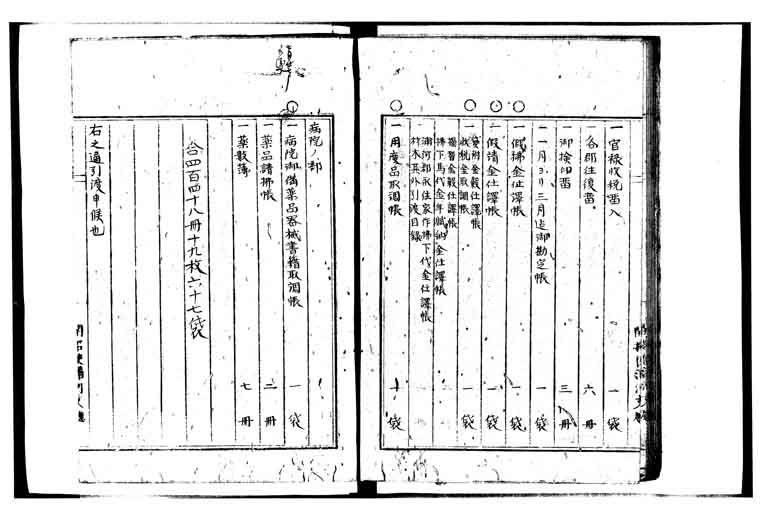 一官禄收税書入 一袋
一各郡往復書 六冊
一御検印書 三冊
一一月ヨリ三月迄御勘定帳 一袋
一假拂金仕譯帳 一袋
一假請金仕譯帳 一袋
貸附金穀仕譯帳
收税金取調帳 一袋
金穀仕譯帳
拂下馬代金年賦納金仕譯帳
浦河郡永住家作拂下代金仕譯帳
材木其外引渡目録
一用度品取調帳 袋
病院ノ部
一病院御備薬品器械書籍取調帳 一袋
一薬品請拂帳 二冊
一薬数簿 七冊
合四百四十八冊十九枚六十七袋
右之通引渡申候也